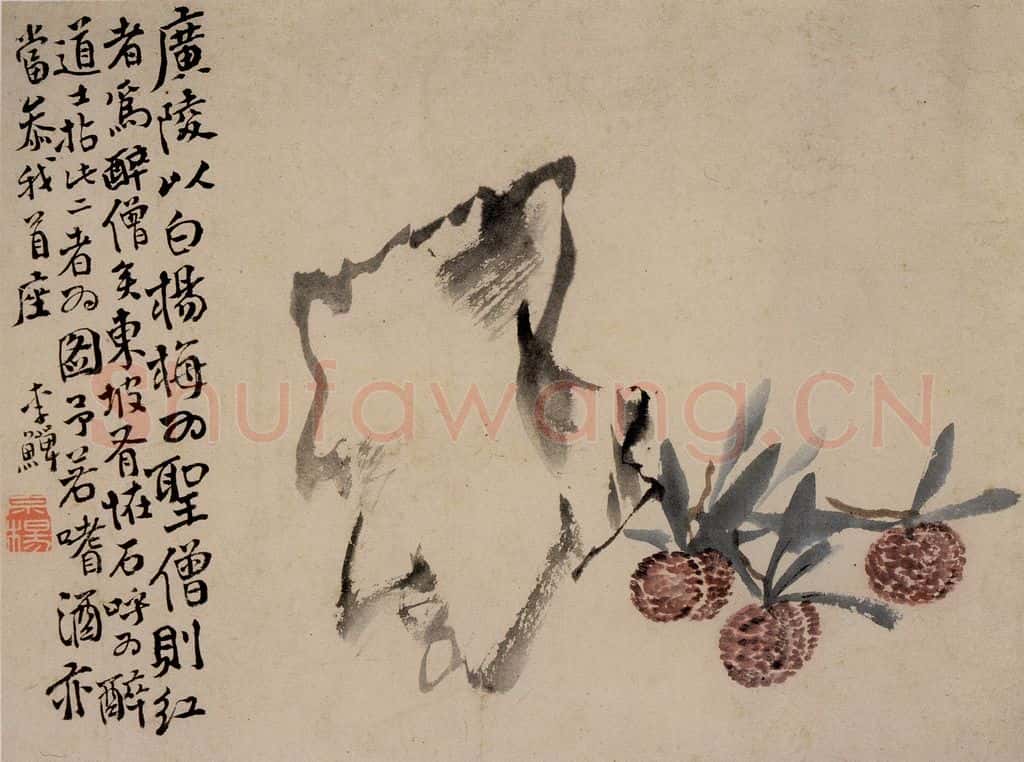 廣陵以白楊梅为聖僧則紅
者爲醉僧矣東坡有恠石呼为醉
道士拈此二者为圖予若嗜酒亦
當叅我首座
李鱓
宗揚
Shufawang.CN